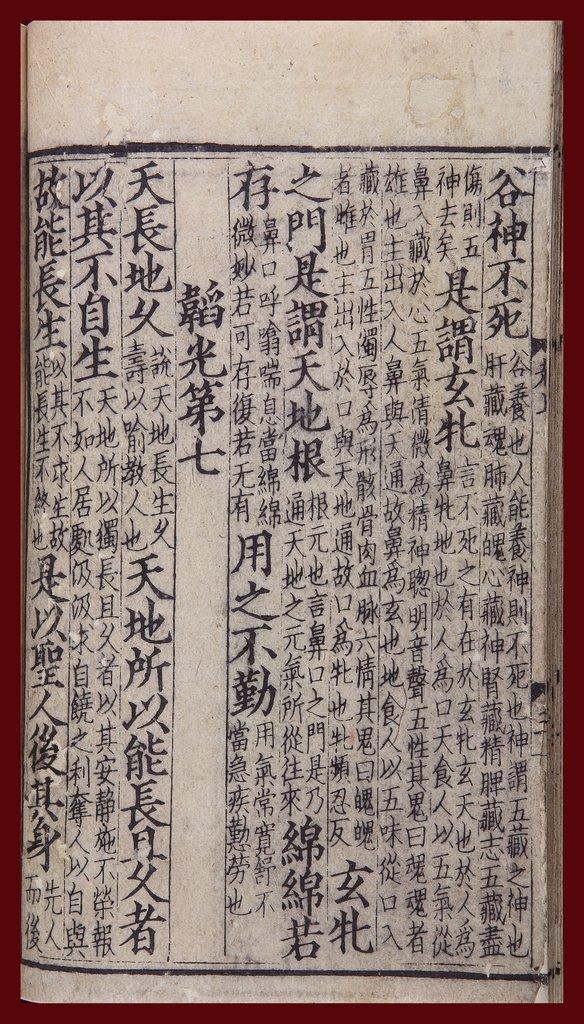 谷神不死
谷養也人能養神則不死也神謂五藏之神也
肝藏魂肺藏魄心藏神腎藏精脾藏志五藏盡
傷則五
神去矣
是謂玄牝
言不死之有在於玄牝玄天也於人為
鼻牝地也於人為口天食人以五氣從
鼻入藏於心五氣清微為精神聰明音聲五性其鬼曰魂魂者
雄也主出入人鼻與天通故鼻為玄也地食人以五味從口入
藏於胃五性濁辱為形骸骨肉血脉六情其鬼曰魄魄
者雌也主出入於口與天地通故口為牝也牝頻忍反
玄牝
之門是謂天地根
根元也言鼻口之門是乃
通天地之元氣所從往來
綿綿若
存
鼻口呼噏喘息當綿綿
微妙若可存復若无有
用之不勤
用氣常寬舒不
當急疾懃勞也
韜光第七
天長地久
說天地長生久
壽以喻教人也
天地所以能長且久者
以其不自生
天地所以獨長且久者以其安静施不榮報
不如人居處汲汲求自饒之利奪人以自與
故能長生
以其不求生故
能長生不終也
是以聖人後其身
先人
而後